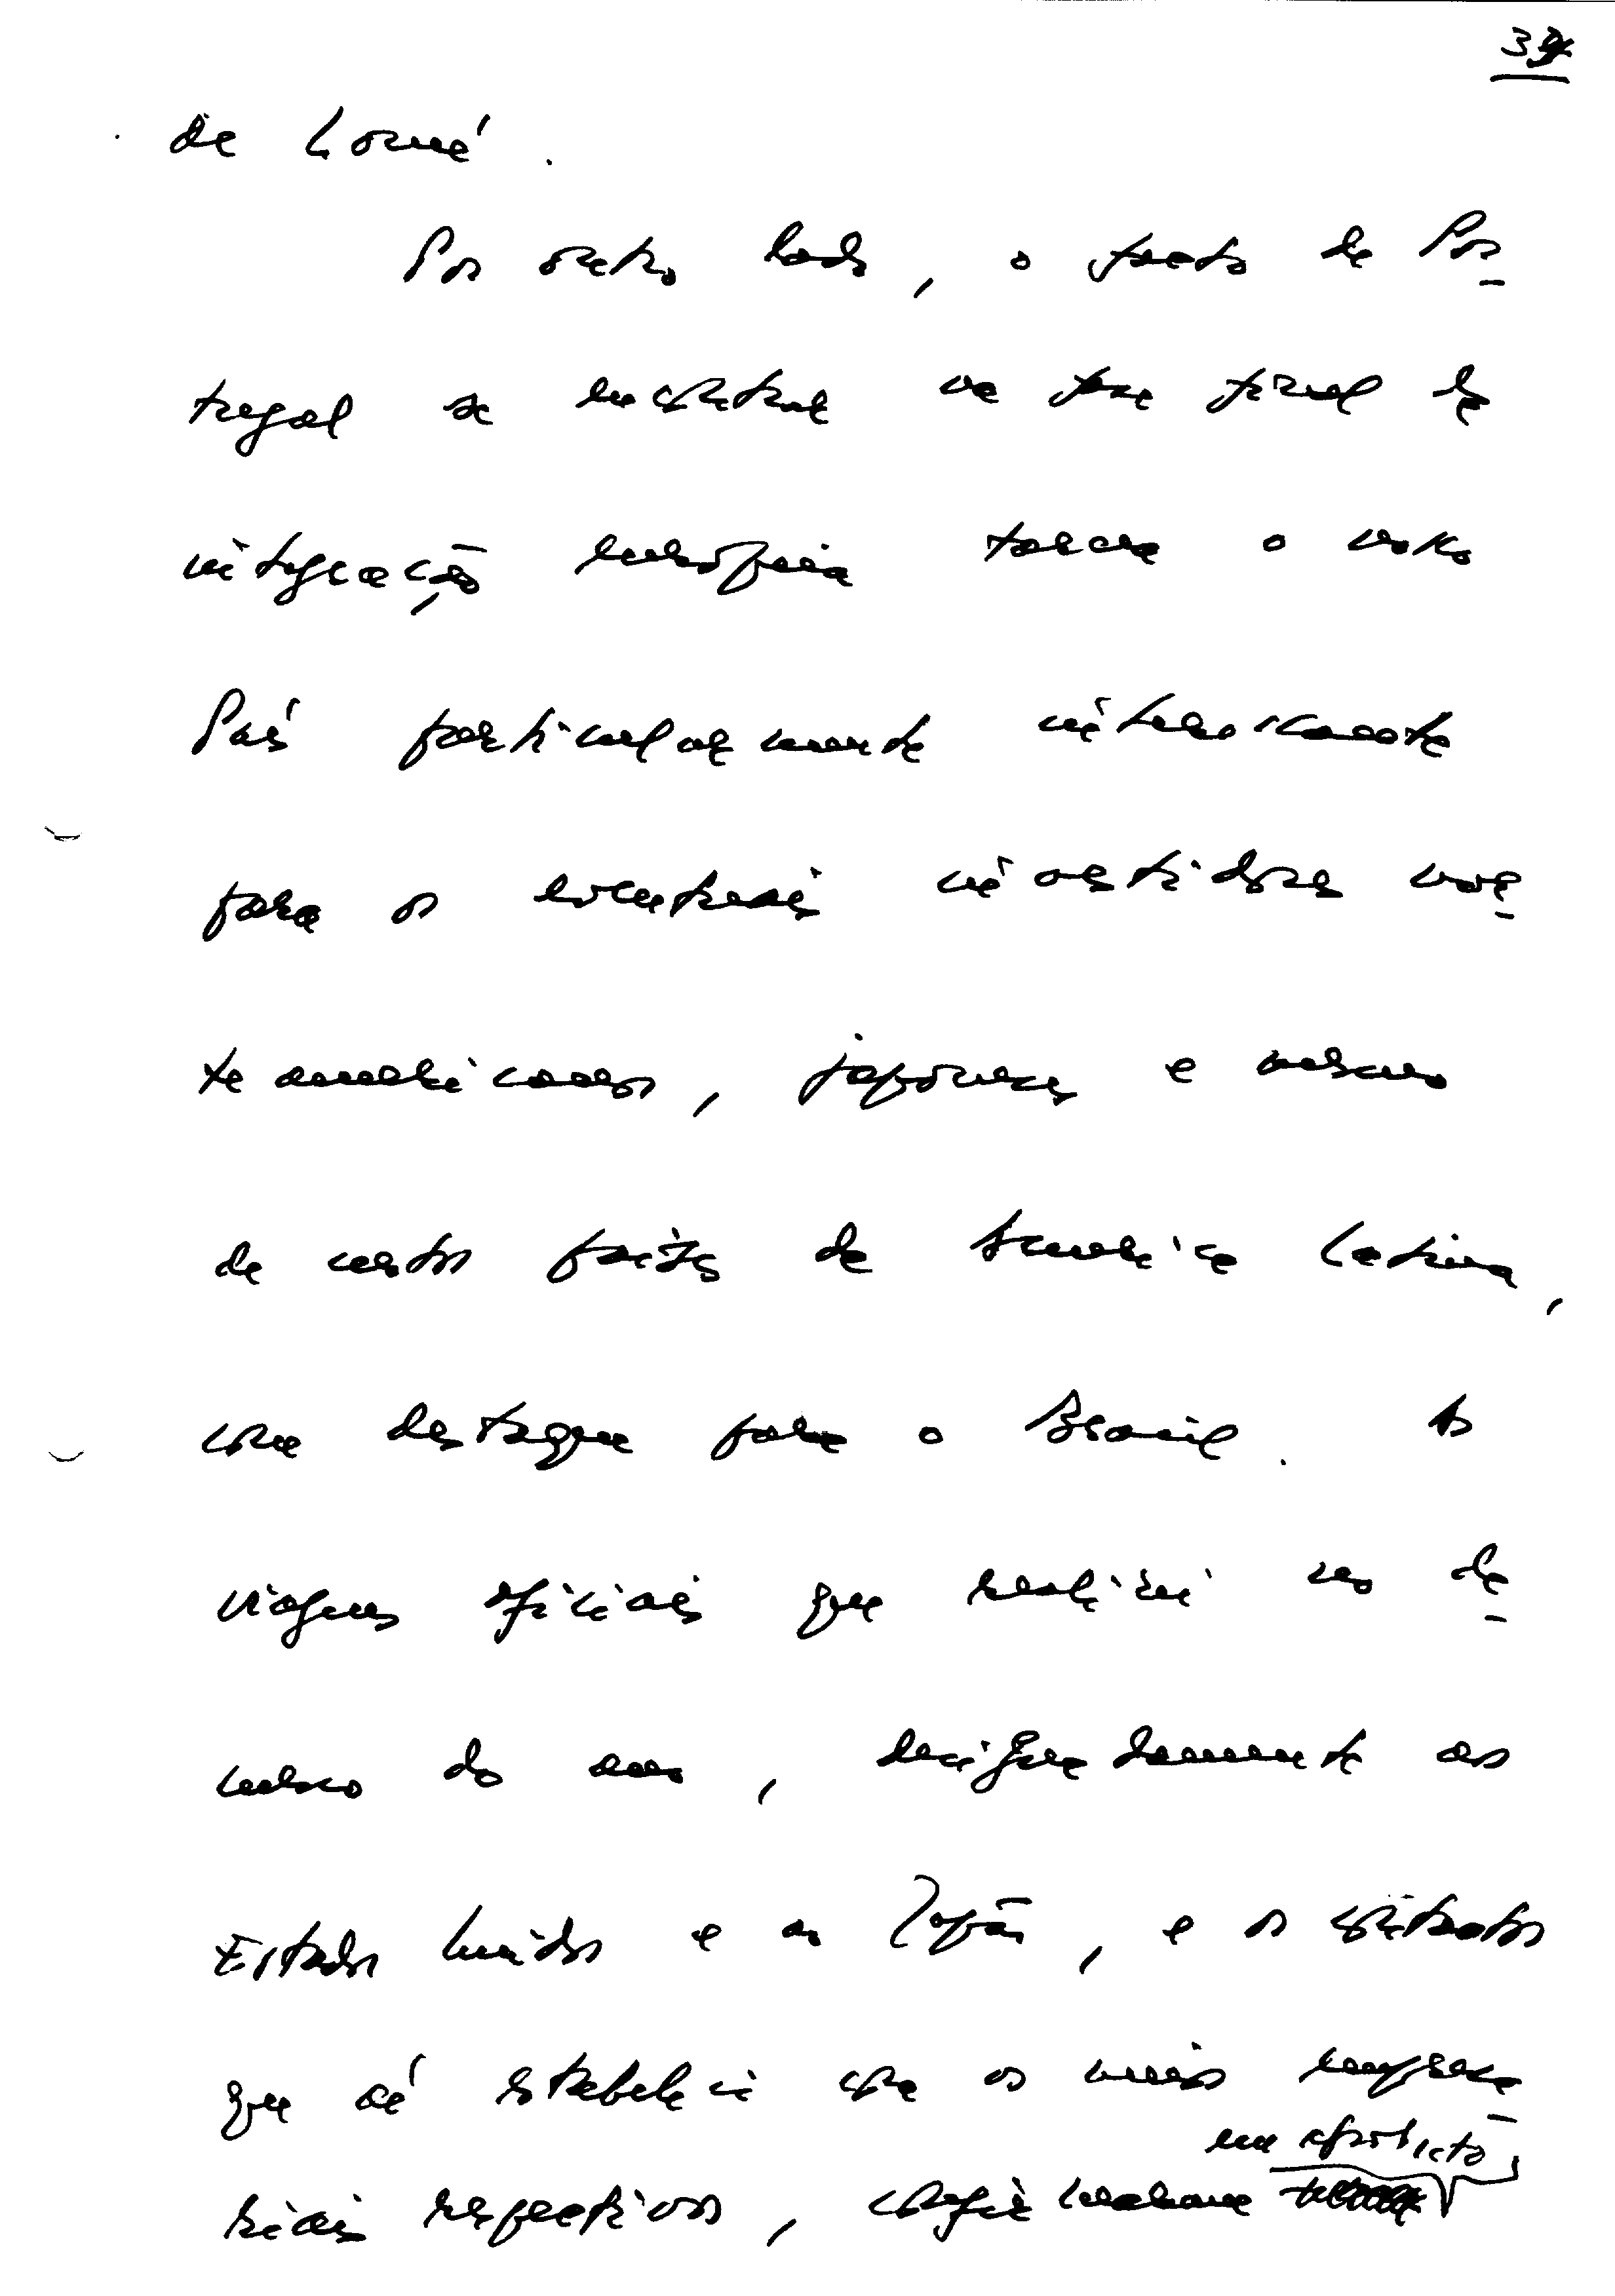 de Lomé.
Por outro lado, o facto de Por-
tugal se encontrar na fase final de
integração europeia torna o nosso
País particularmente interessante
para os eventuais investidores nor-
te americanos, japoneses e mesmo
de certos países da América Latina,
com destaque para o Brasil. As
viagens oficiais que realizei no de-
curso do ano, designadamente aos
Estados Unidos e ao Japão, e os contactos
que aí estabeleci com os meios empresa-
em absoluto
riais respectivos, confirmaram